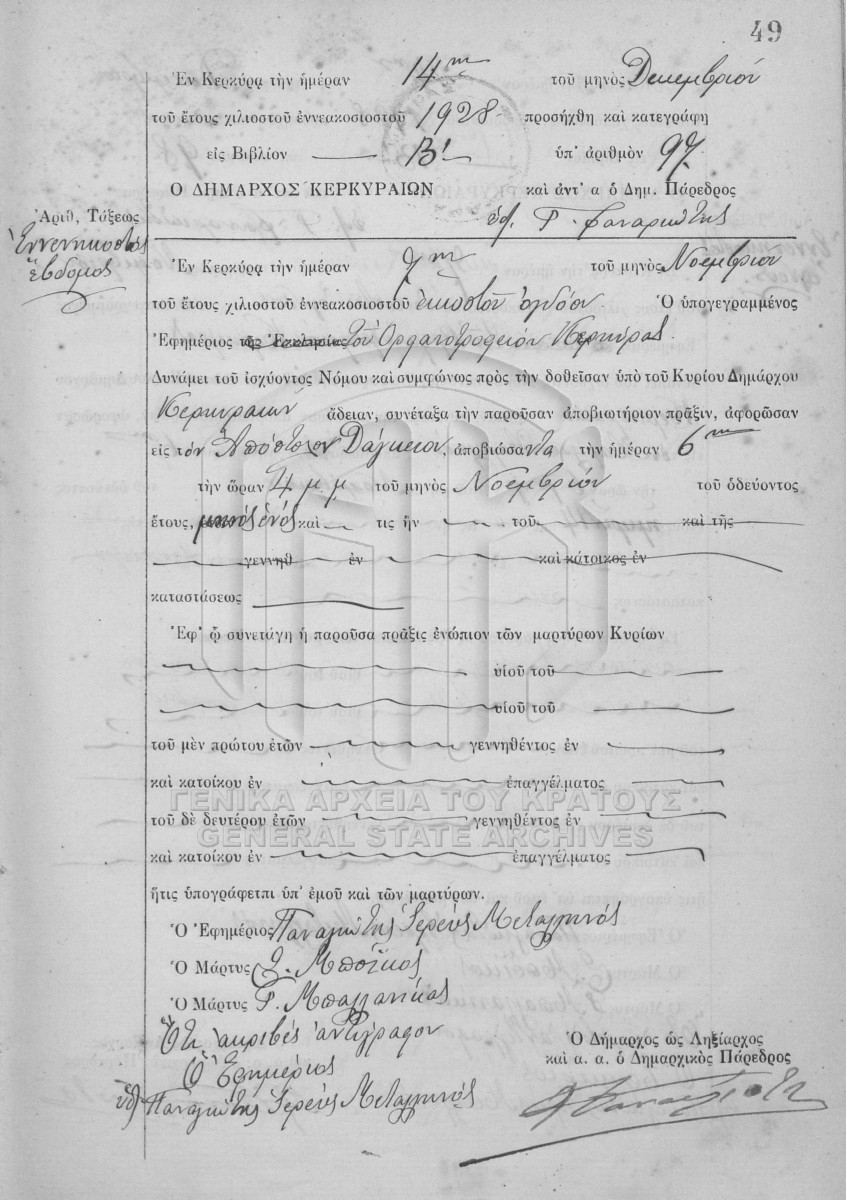 49
Ἐν Κερκύρᾳ τὴν ἡμέραν 14ην τοῦ μηνὸς Δεκεμβρίου
τοῦ ἔτους χιλιοστοῦ ἐννεακοσιοστοῦ 1928 προσήχθη καὶ κατεγράφη
εἰς Βιβλίον Β' ὑπ' ἀριθμὸν 97
Ο ΔΗΜΑΡΧΟΣ ΚΕΡΚΥΡΑΙΩΝ καὶ ἀντ' α ὁ Δημ. Πάρεδρος
ὑφ. Γ. Φαναριώτης
Ἀριθ. Τάξεως
Ἐννενηκοστὸς
ἕβδομος
Ἐν Κερκύρᾳ τὴν ἡμέραν 7ην τοῦ μηνὸς Νοεμβρίου
τοῦ ἔτους χιλιοστοῦ ἐννεακοσιοστοῦ εἰκοστοῦ ὀγδόου Ὁ ὑπογεγραμμένος
Ἐφημέριος τῆς Ἐκκλησίας τοῦ Ὀρφανοτροφείου Κερκύρας
Δυνάμει τοῦ ἰσχύοντος Νόμου καὶ συμφώνως πρὸς τὴν δοθεῖσαν ὑπὸ τοῦ Κυρίου Δημάρχου
Κερκυραίων ἄδειαν, συνέταξα τὴν παροῦσαν ἀποβιωτήριον πρᾶξιν, ἀφορῶσαν
εἰς τὸν Ἀπόστολον Δάγκειον, ἀποβιώσαντα τὴν ἡμέραν 6ην
τὴν ὥραν 4 μ μ τοῦ μηνὸς Νοεμβρίου τοῦ ὁδεύοντος
ἔτους, μηνὸς ἑνὸς καὶ τις ἦν τοῦ καὶ τῆς
γεννηθ ἐν καὶ κάτοικος ἐν
καταστάσεως
Ἐφ' ᾧ συνετάγη ἡ παροῦσα πρᾶξις ἐνώπιον τῶν μαρτύρων Κυρίων
υἱοῦ τοῦ
υἱοῦ τοῦ
τοῦ μὲν πρώτου ἐτῶν γεννηθέντος ἐν
καὶ κατοίκου ἐν ἐπαγγέλματος
ΓΕΝΙΚΑ ΑΡΧΕΙΑ ΤΟΥ ΚΡΑΤΟΥΣ
τοῦ δὲ δευτέρου ἐτῶν γεννηθέντος ἐν
GENERAL STATE ARCHIVES
καὶ κατοίκου ἐν ἐπαγγέλματος
ἥτις ὑπογράφεται ὑπ' ἐμοῦ καὶ τῶν μαρτύρων.
Ὁ Ἐφημέριος Παναγιώτης Ἱερεὺς Μεταλληνός
Ὁ Μάρτυς Σ. Μποΐκος
Ὁ Μάρτυς Γ.
Ὅτι ἀκριβὲς ἀντίγραφον
Ὁ Ἐφημέριος
ὑφ Παναγιώτης Ἱερεὺς Μεταλληνός
Ὁ Δήμαρχος ὡς Ληξίαρχος
καὶ α. α. ὁ Δημαρχικὸς Πάρεδρος